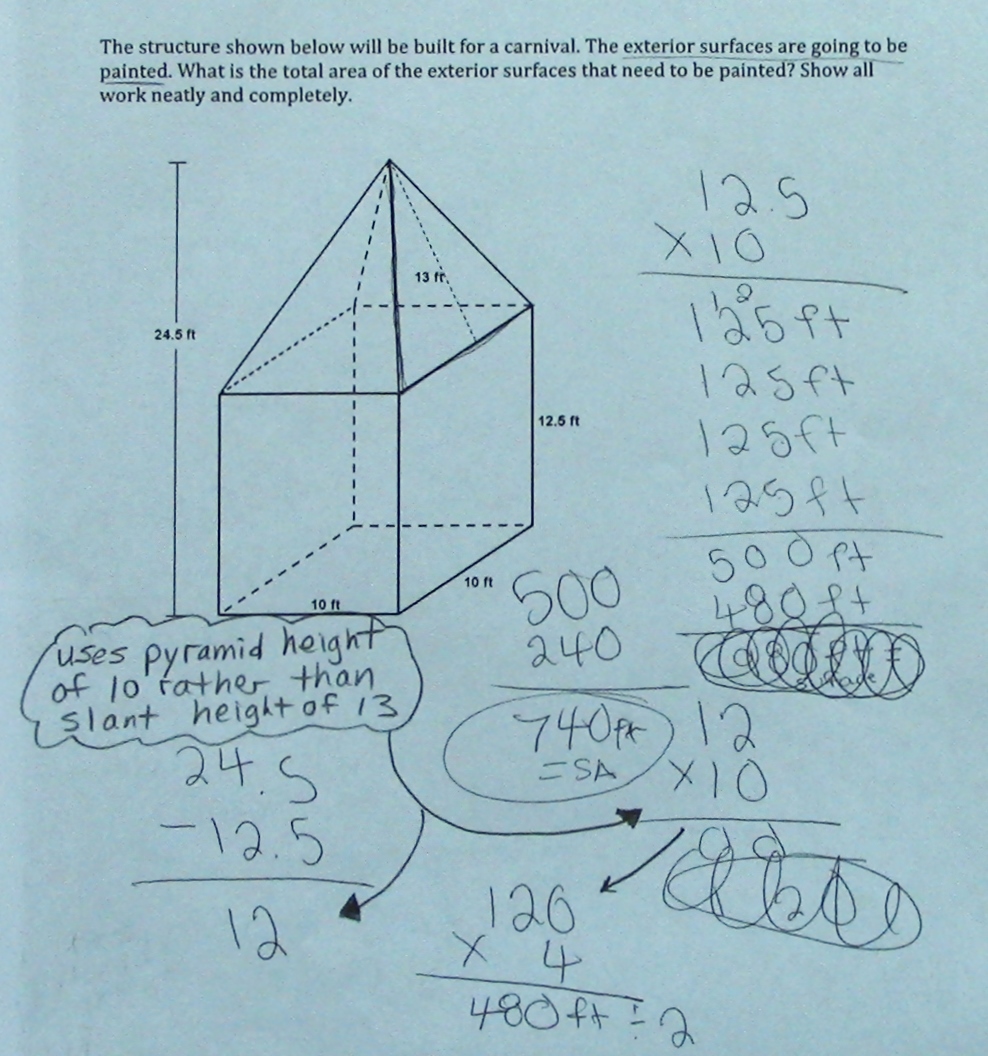 The structure shown below will be built for a carnival. The exterior surfaces are going to be
painted. What is the total area of the exterior surfaces that need to be painted? Show all
work neatly and completely.
24.5 ft
13 ft
12.5 ft
10 ft
10 ft
12.5
×10
125 ft
125 ft
125 ft
125 ft
500 ft
480 ft
500
240
740 ft
= SA
uses pyramid height
of 10 rather than
slant height of 13
24.5
-12.5
12
12
×10
120
× 4
480 ft ÷ 2